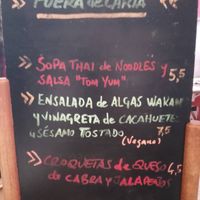 FUERA de CARTA
SOPA THAI de NOODLES y
SALSA "TOM YUM" 5,5
ENSALADA de ALGAS WAKAM
y VINAGRETA de CACAHUETE
y SÉSAMO TOSTADO 7,5
(Vegano)
CROQUETAS de QUESO 4,5
de CABRA y JALAPEÑOS